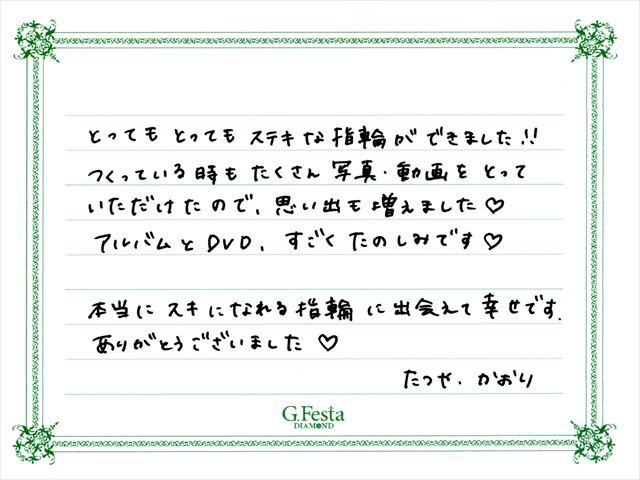 とってもとってもステキな指輪ができました!!
つくっている時もたくさん写真・動画をとって
いただけたので、思い出も増えました♡
アルバムとDVD、すごくたのしみです♡
本当にスキになれる指輪に出会えて幸せです.
ありがとうございました♡
たつや.かおり
G.Festa
DIAMOND